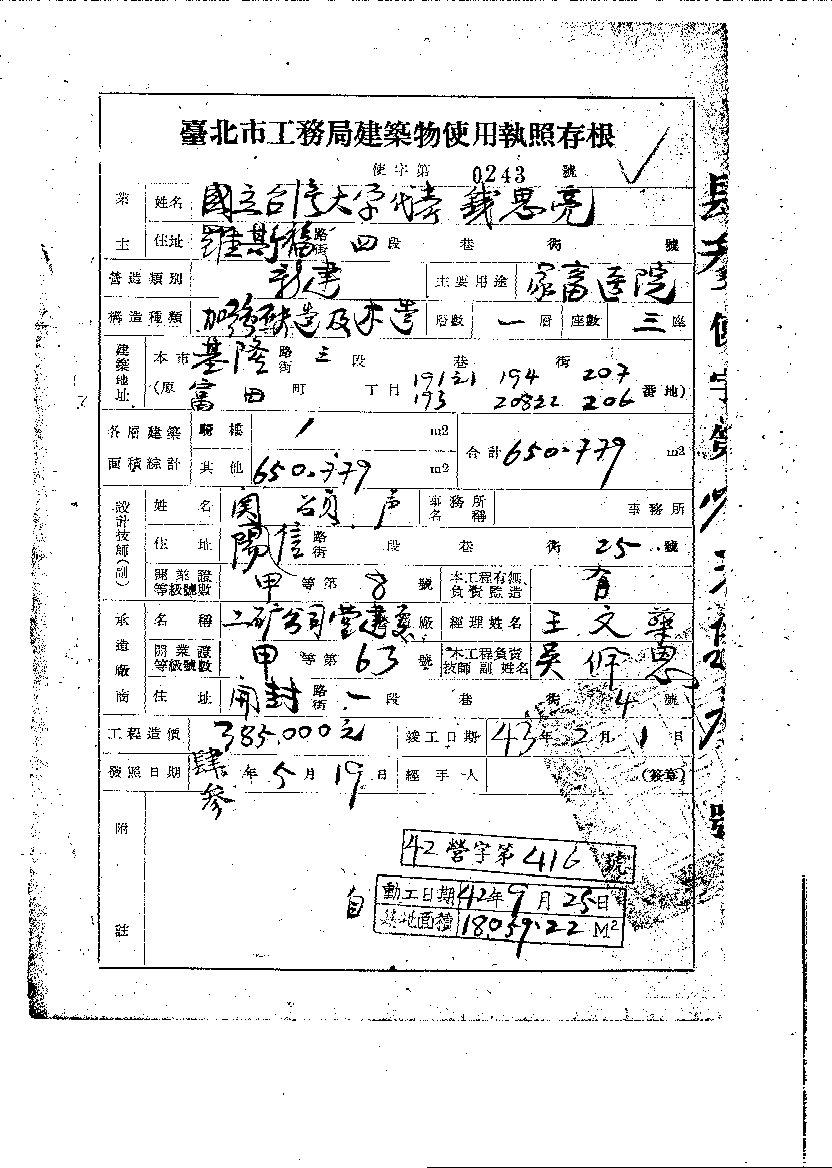 臺北市工務局建築物使用執照存根
使字第 0243 號
業主 姓名 國立台湾大学代表 錢思亮
住址 羅斯福 路街 四 段 巷 街 號
營造類別 新建 主要用途 家畜医院
構造種類 加強磚造及木造 層數 一 層 座數 三 座
建築地址 本市 基隆 路街 三 段 巷 街
(原 富田 町 丁目 191之1 194 207 193 208之2 206 番地)
各層建築面積綜計 騎樓 / m2 合計 650.779 m2
其他 650.779 m2
設計技師(副) 姓名 關頌声 事務所名稱 事務所
住址 陽信 路街 段 巷 街 25 號
開業證等級號數 甲 等第 8 號 本工程有無負責監造 有
承造廠商 名稱 工矿公司營建部 廠 經理姓名 王文
開業證等級號數 甲 等第 63 號 本工程負責技師 副 姓名 吳 思
住址 開封 路街 一 段 巷 街 4 號
工程造價 385.000元 竣工日期 43年 2月 1日
發照日期 肆參 年 5 月 19 日 經手人 (簽章)
附註
42營字第416號
自 動工日期 42年9月25日
基地面積 18059.22 M2
使字第
號